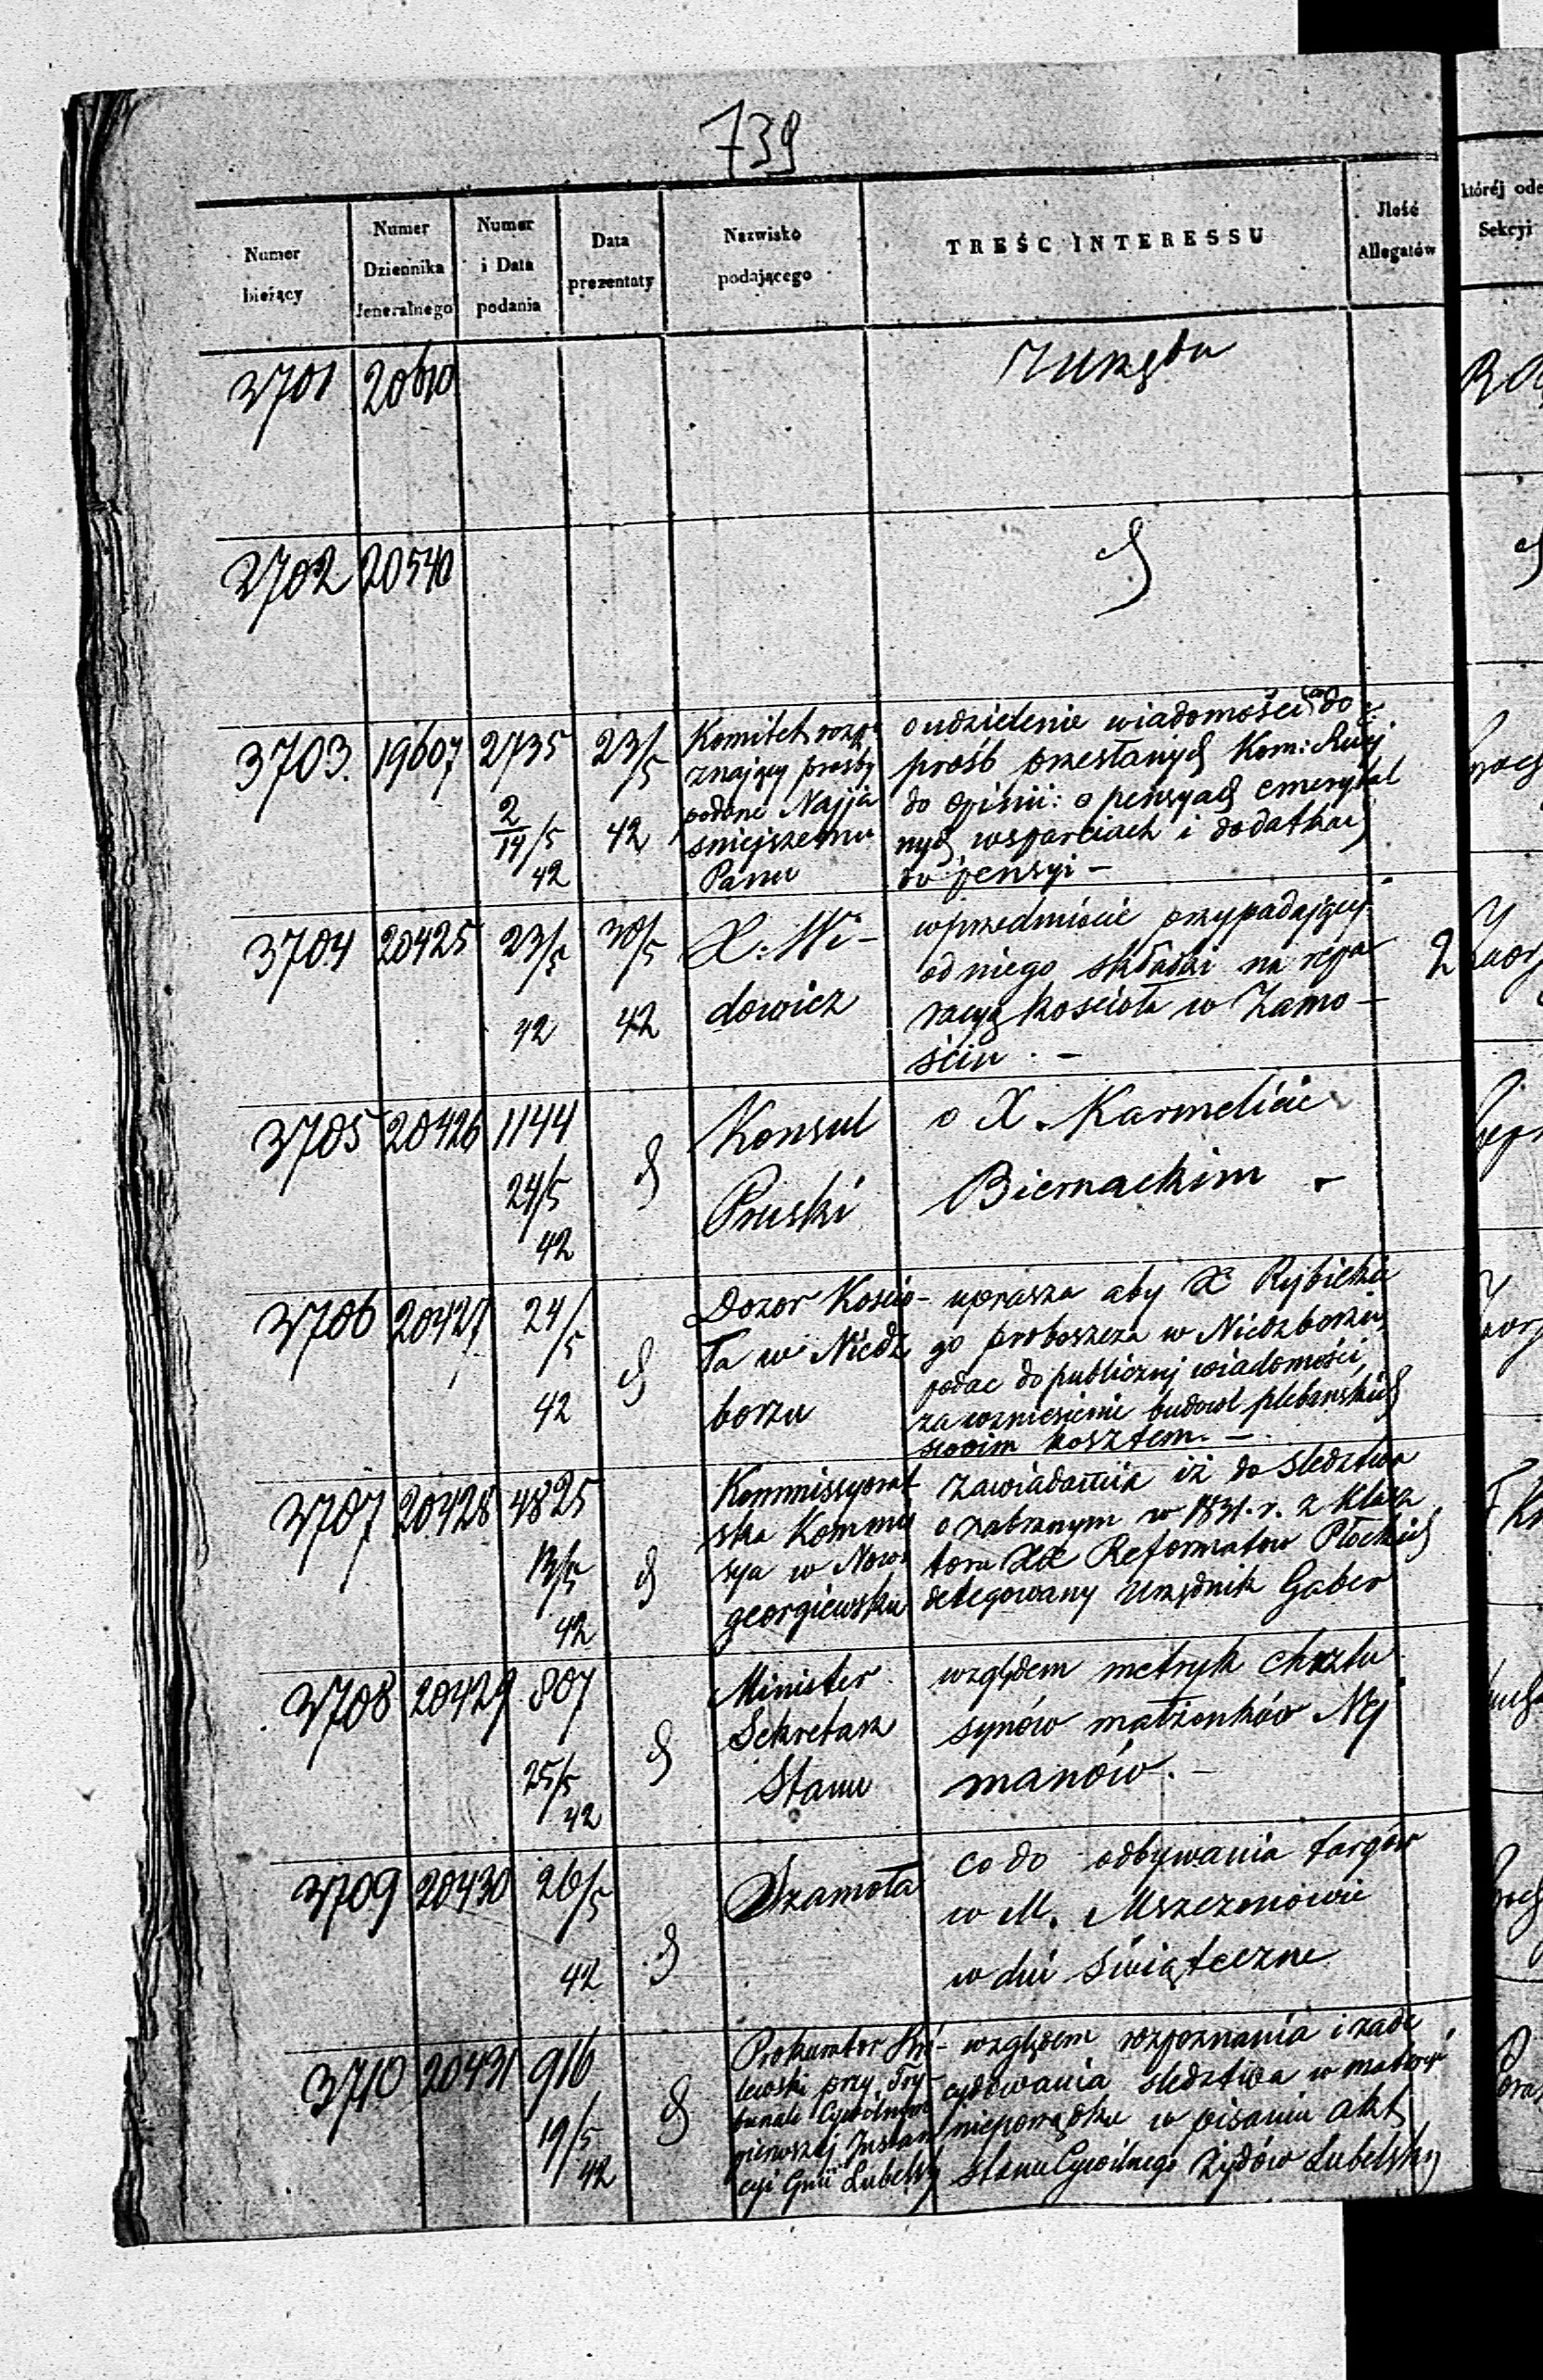 739
Numer bieżący
Numer Dziennika Jeneralnego
Numer i Data podania
Data prezentaty
Nazwisko podającego
TREŚC INTERESSU
Ilość Allegatów
któréj ode
Sekcyi
3701 20610 Z Urzędu
3702 20540
3703. 19607 2735 2/14/5 42 23/5 42
Komitet rozpo
znający prosby
podane Najja
śniejszemu
Panu
o udzielenie wiadomości co do
prośb przesłanych Kom: Rząj
do opinii: o pensyach emerytal
nych wsparciach i dodatkach
do pensyi –
3704 20425 23/5 42 30/5 42
X: Wi-
dowicz
w przedmiocie przypadającey
od niego składki na repa
racyą kościoła w Zamo –
ściu . –
2
3705 20426 1144 24/5 42
Konsul
Pruski
o X. Karmelicie
Biernackim –
3706 20427 24/5 42
Dozor Koscio-
ła w Niedz
borzu
uprasza aby X Rybickie
go proboszcza w Niedzborzu,
podac do publicznej wiadomości,
za wzniesienie budowl plebańskich
swoim kosztem. –
3707 20428 4825 13/5 42
Kommissyorat
ska Kommis
sya w Nowo
georgiewsku
zawiadamia iż do sledztwa
o zabranym w 1831. r. z Klasz
toru XX Reformatow Płockich
delegowany Urzędnik Gaber
3708 20429 807 25/5 42
Minister
Sekretarz
Stanu
względem metryk chrztu
synów małżonków Nej
manów. –
3709 20430 26/5 42
Szamota
co do odbywania targów
w M. Mszczonowie
w dni świąteczne
3710 20431 916 19/5 42
Prokurator Kró-
lewski przy Try-
bunale Cywilnym
pierwszej Instan
cyi Gnii Lubelsky
względem rozpoznania i zade
cydowania sledztwa w materyi
nieporządku w pisaniu akt
Stanu Cywilnego Żydów Lubelsky